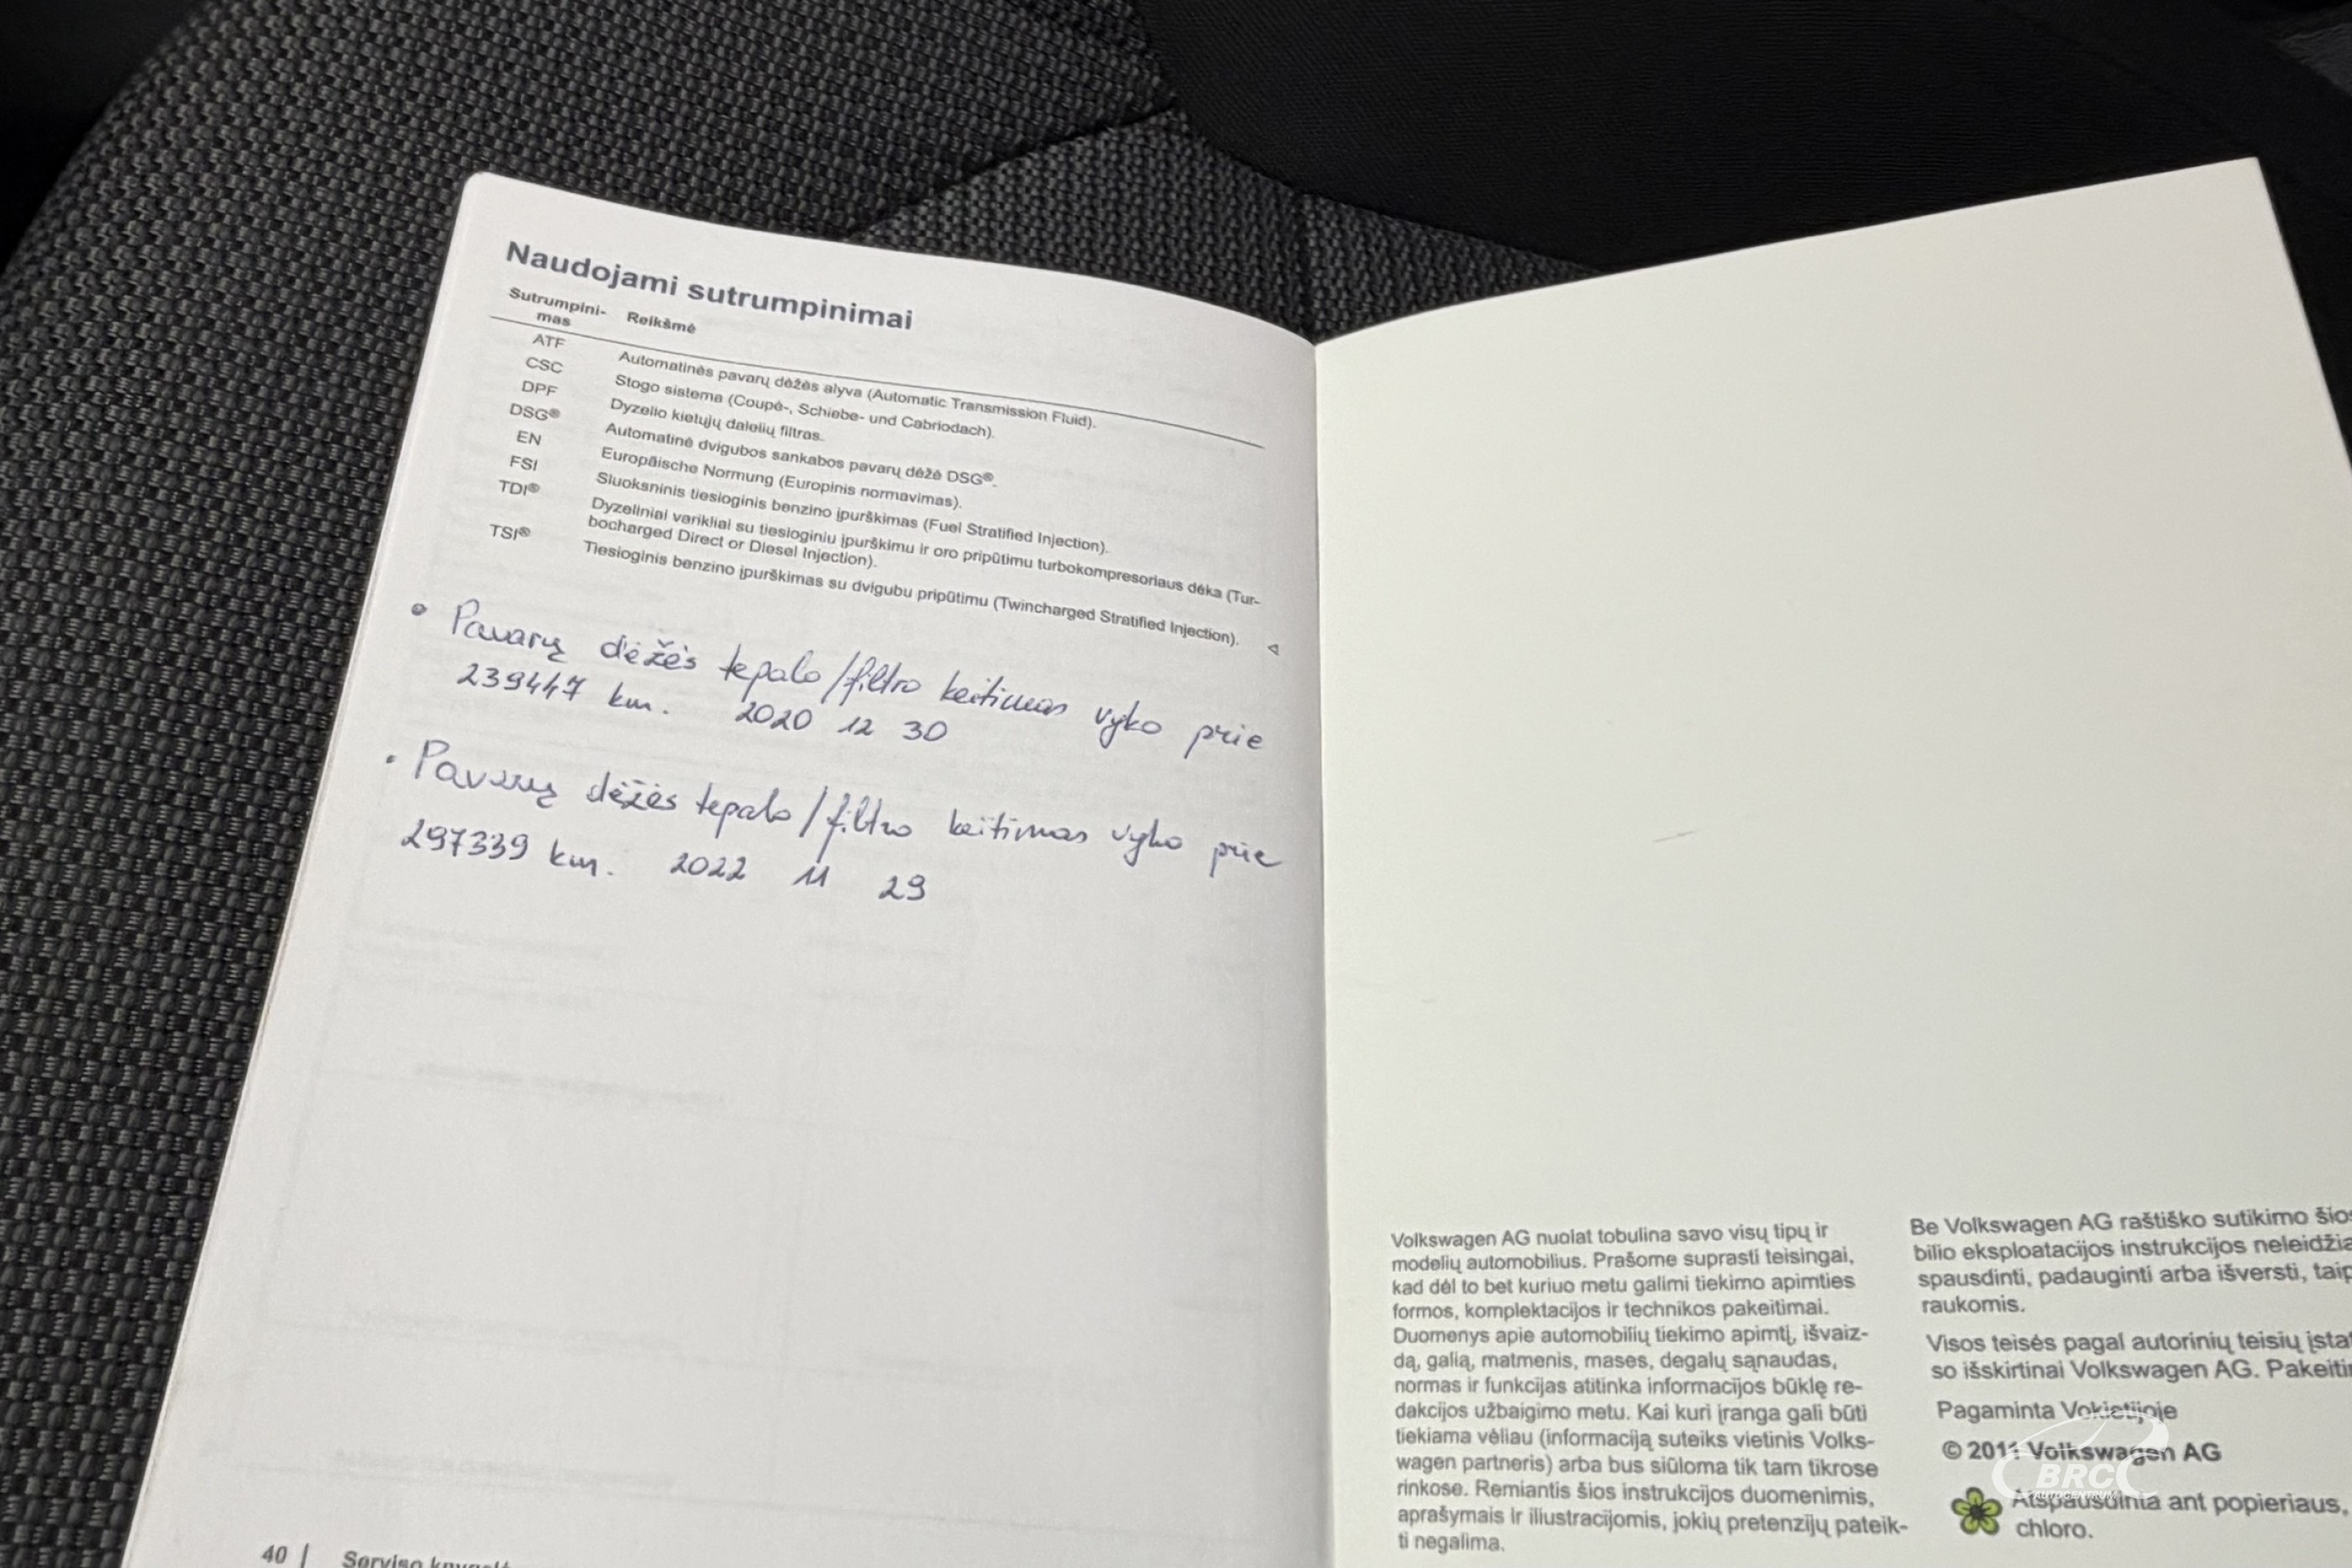 Naudojami sutrumpinimai
Sutrumpini-
mas
Reikšmė
ATF Automatinės pavarų dėžės alyva (Automatic Transmission Fluid).
CSC Stogo sistema (Coupé-, Schiebe- und Cabriodach).
DPF Dyzelio kietųjų dalelių filtras.
DSG® Automatinė dvigubos sankabos pavarų dėžė DSG®.
EN Europäische Normung (Europinis normavimas).
FSI Sluoksninis tiesioginis benzino įpurškimas (Fuel Stratified Injection).
TDI® Dyzeliniai varikliai su tiesioginiu įpurškimu ir oro pripūtimu turbokompresoriaus dėka (Tur-
bocharged Direct or Diesel Injection).
TSI® Tiesioginis benzino įpurškimas su dvigubu pripūtimu (Twincharged Stratified Injection).
• Pavarų dėžės tepalo/filtro keitimas vyko prie
239447 km. 2020 12 30
• Pavarų dėžės tepalo/filtro keitimas vyko prie
297339 km. 2022 11 29
40 | Serviso
Volkswagen AG nuolat tobulina savo visų tipų ir
modelių automobilius. Prašome suprasti teisingai,
kad dėl to bet kuriuo metu galimi tiekimo apimties
formos, komplektacijos ir technikos pakeitimai.
Duomenys apie automobilių tiekimo apimtį, išvaiz-
dą, galią, matmenis, mases, degalų sąnaudas,
normas ir funkcijas atitinka informacijos būklę re-
dakcijos užbaigimo metu. Kai kuri įranga gali būti
tiekiama vėliau (informaciją suteiks vietinis Volks-
wagen partneris) arba bus siūloma tik tam tikrose
rinkose. Remiantis šios instrukcijos duomenimis,
aprašymais ir iliustracijomis, jokių pretenzijų pateik-
ti negalima.
Be Volkswagen AG raštiško sutikimo
bilio eksploatacijos instrukcijos
spausdinti, padauginti arba išversti,
raukomis.
Visos teisės pagal autorinių teisių
so išskirtinai Volkswagen AG.
Pagaminta Vokietijoje
© 2011 Volkswagen AG
Atspausdinta ant popieriaus,
chloro.
BRC
AUTOCENTRUM